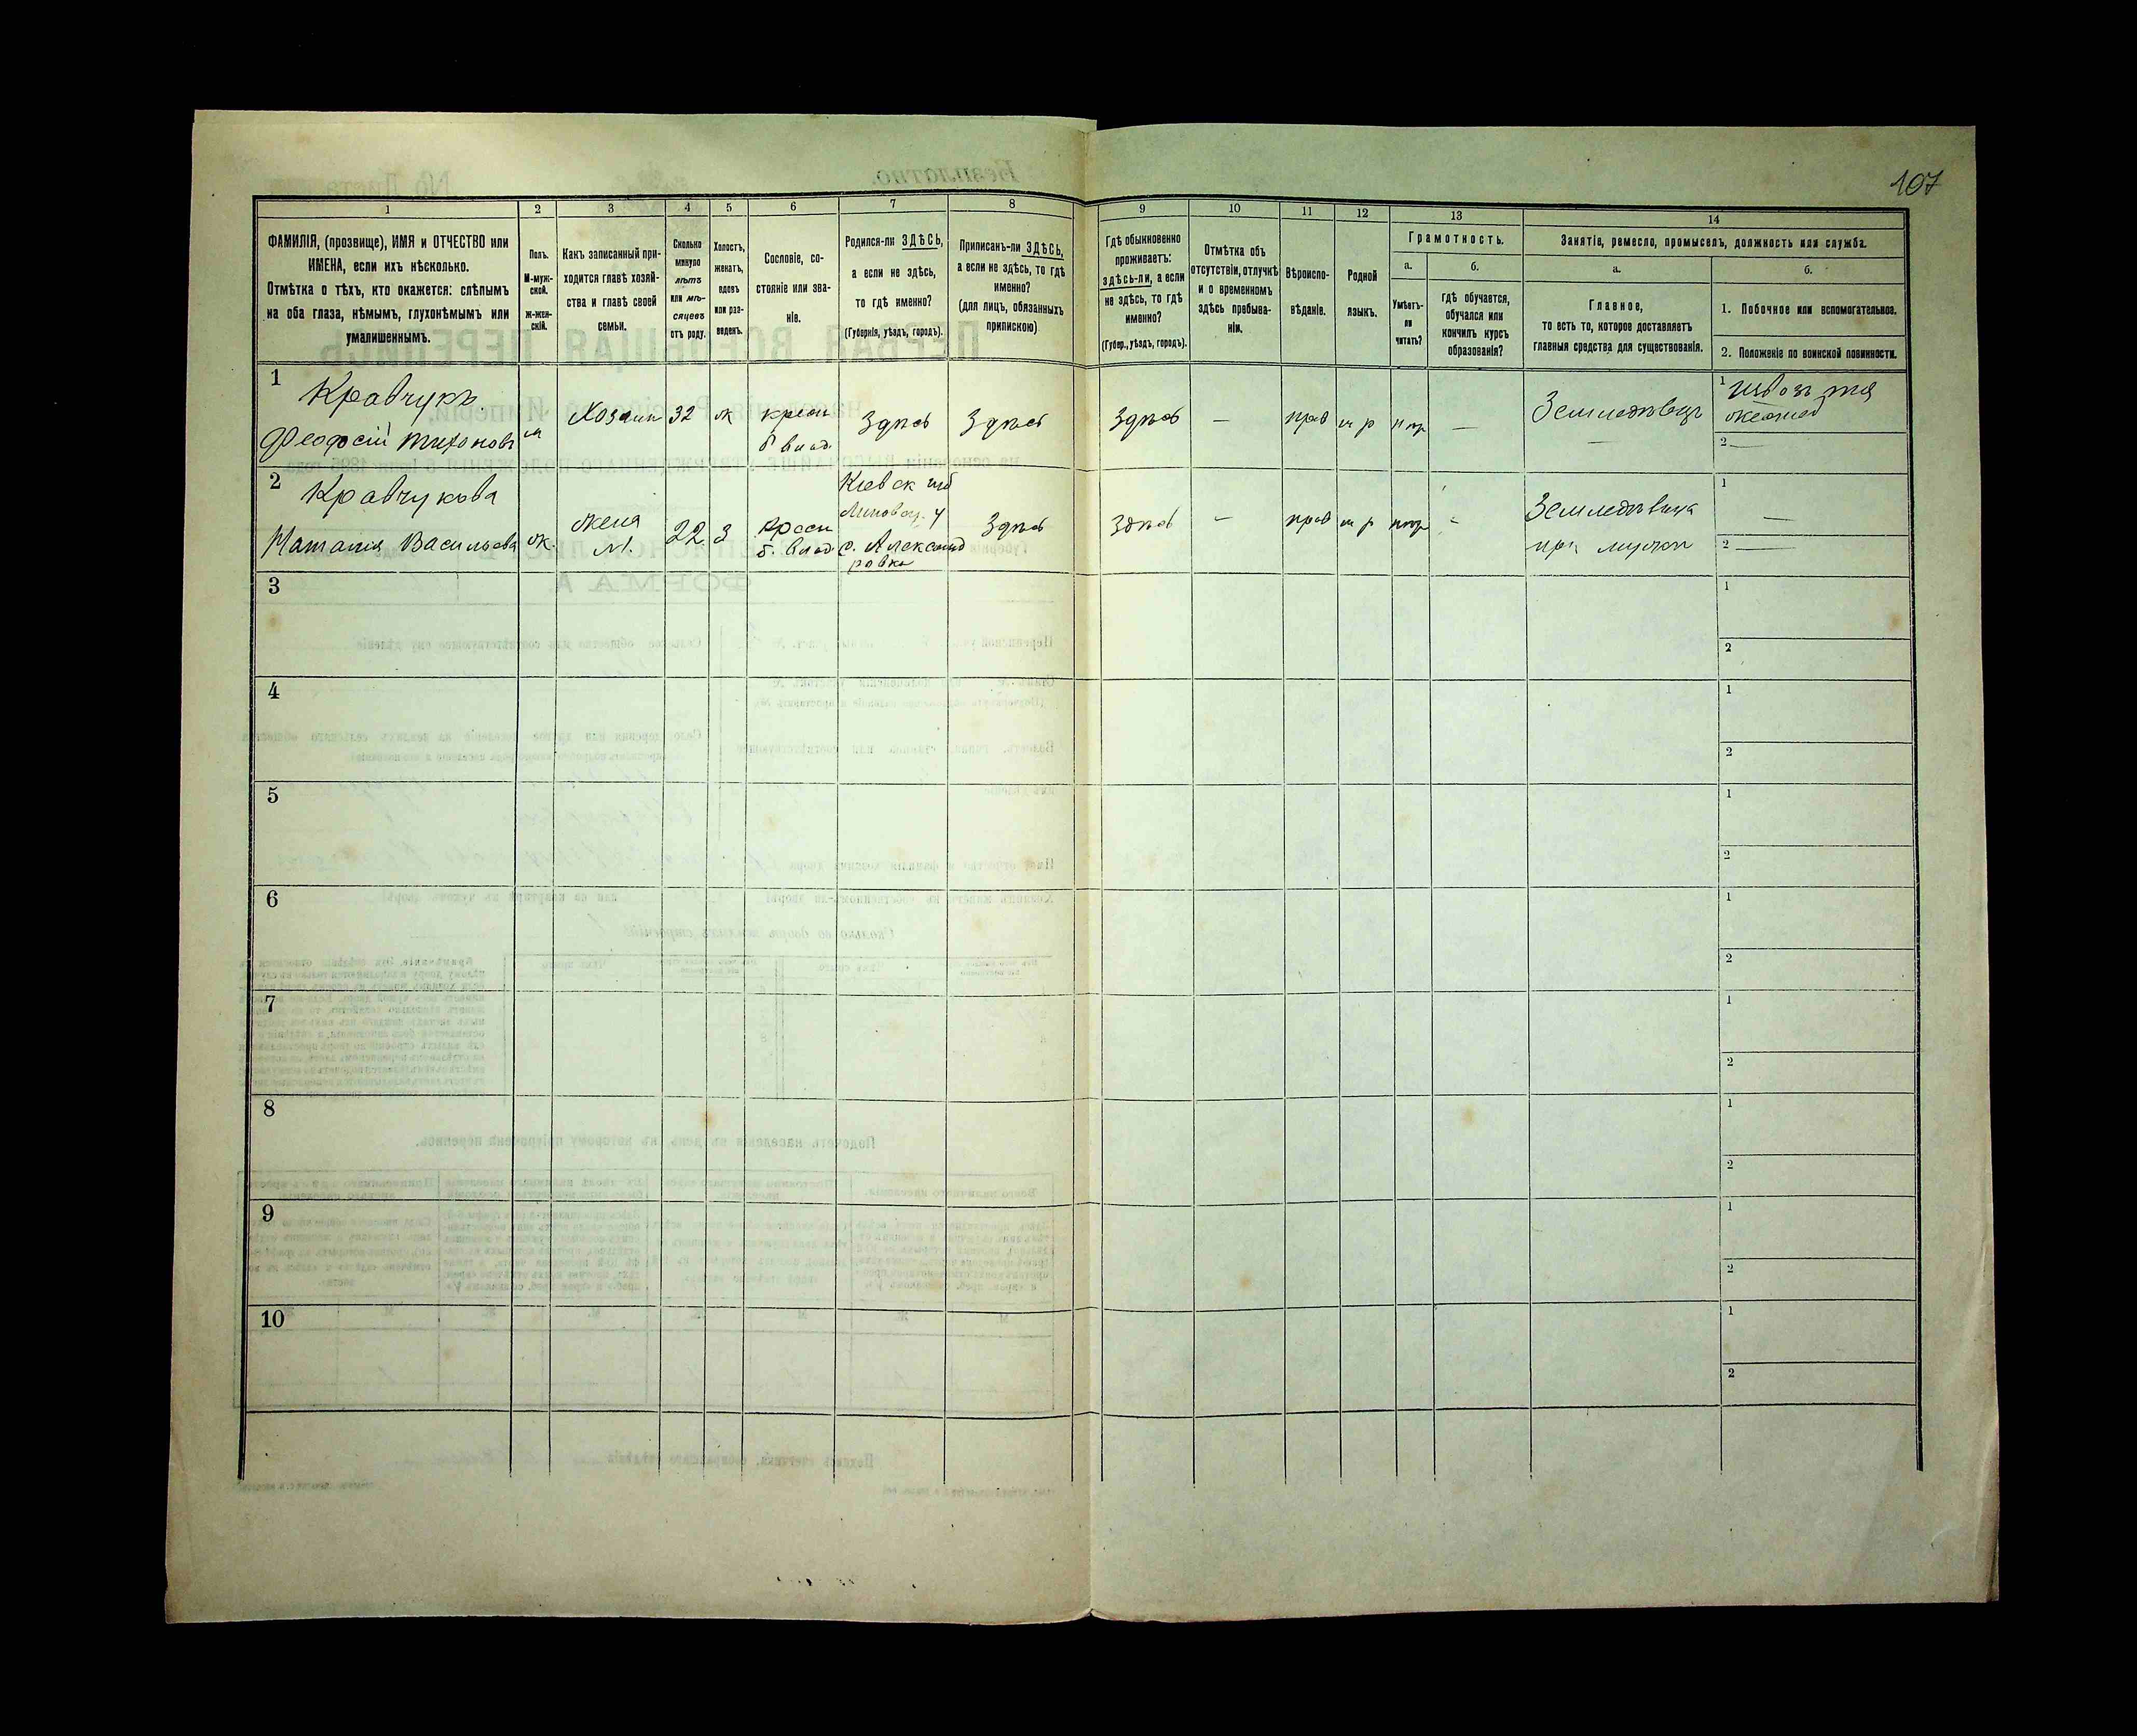 107
1
2
3
4
5
6
7
8
9
10
11
12
13
14
ФАМИЛІЯ, (прозвище), ИМЯ и ОТЧЕСТВО или
ИМЕНА, если ихъ нѣсколько.
Отмѣтка о тѣхъ, кто окажется: слѣпымъ
на оба глаза, нѣмымъ, глухонѣмымъ или
умалишеннымъ.
Полъ.
М-муж-
ской.
ж-жен-
скій.
Какъ записанный при-
ходится главѣ хозяй-
ства и главѣ своей
семьи.
Сколько
минуло
лѣтъ
или мѣ-
сяцевъ
отъ роду.
Холостъ,
женатъ,
вдовъ
или раз-
веденъ.
Сословіе, со-
стояніе или зва-
ніе.
Родился-ли ЗДѢСЬ,
а если не здѣсь,
то гдѣ именно?
(Губернія, уѣздъ, городъ).
Приписанъ-ли ЗДѢСЬ,
а если не здѣсь, то гдѣ
именно?
(для лицъ, обязанныхъ
припискою)
Гдѣ обыкновенно
проживаетъ:
здѣсь-ли, а если
не здѣсь, то гдѣ
именно?
(Губер., уѣздъ, городъ).
Отмѣтка объ
отсутствіи, отлучкѣ
и о временномъ
здѣсь пребыва-
ніи.
Вѣроиспо-
вѣданіе.
Родной
языкъ.
Грамотность.
а.
Умѣетъ-
ли
читать?
б.
гдѣ обучается,
обучался или
кончилъ курсъ
образованія?
Занятіе, ремесло, промыселъ, должность или служба.
а.
Главное,
то есть то, которое доставляетъ
главныя средства для существованія.
б.
1. Побочное или вспомогательное.
2. Положеніе по воинской повинности.
1
Кравчукъ
Феодосій Тихоновъ
м
Хозяин
32
ж
крест
б влад.
Здѣсь
Здѣсь
Здѣсь
—
прав
м р
нтр
—
Земледѣлецъ
—
1
2 —
2
Кравчукова
Наталія Васильева
ж.
жена
м.
22
з
крест
б. влад.
Кіевск губ
Липовец. у
с. Александ
ровка
Здѣсь
Здѣсь
–
прав
м р
нтр
–
Земледѣлица
при мужѣ
1
—
2 —
3
1
2
4
1
2
5
1
2
6
1
2
7
1
2
8
1
2
9
1
2
10
1
2